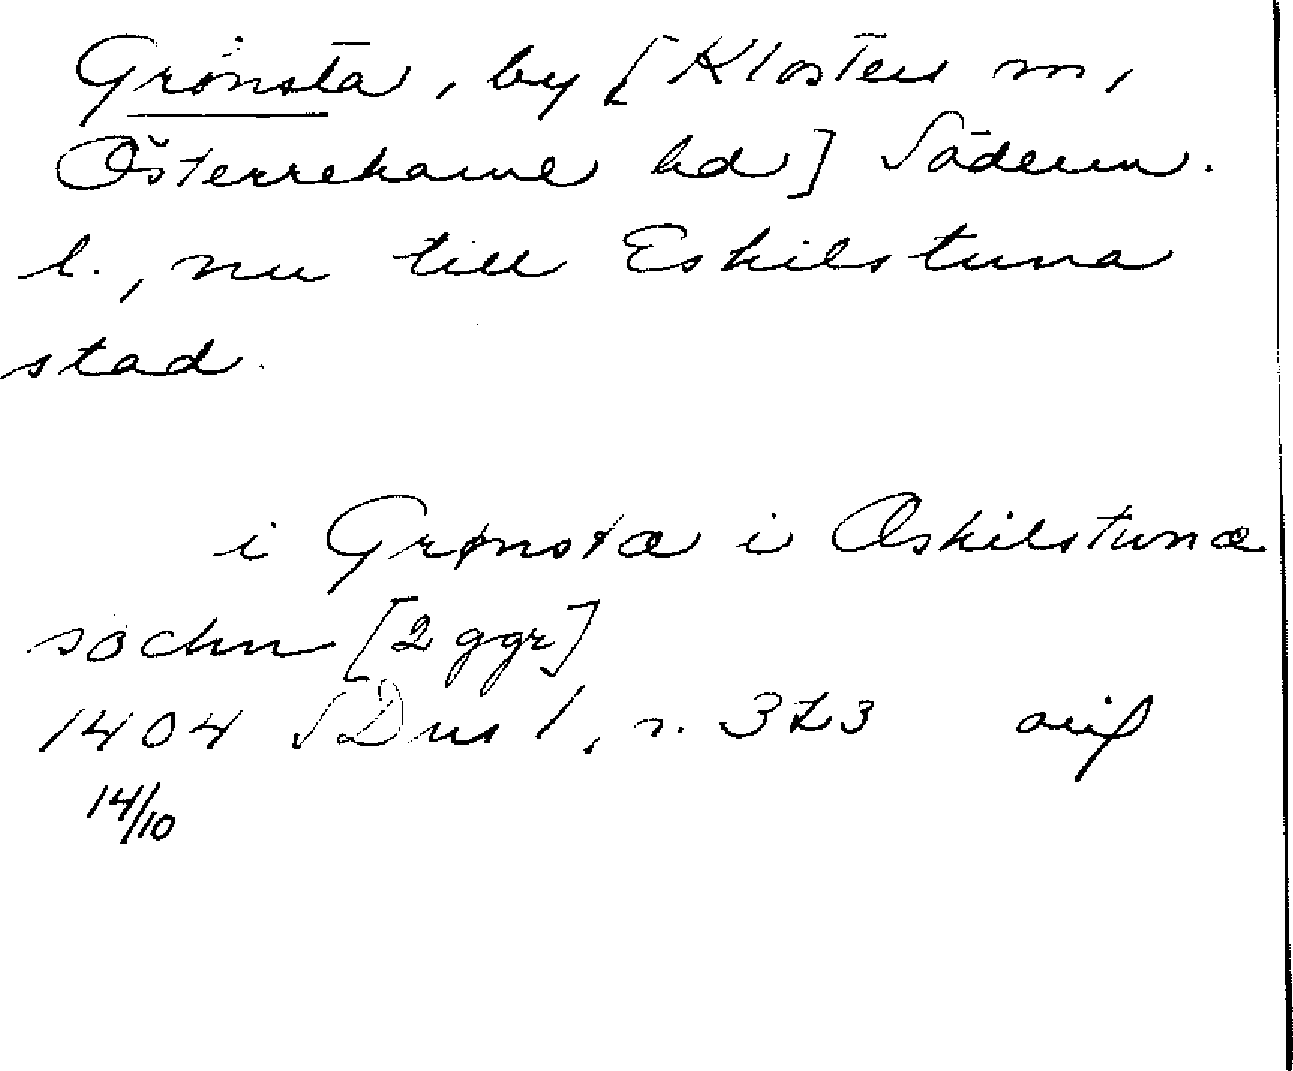 Grönsta, by [Klosters sn,
Österrekarne hd] Söderm.
l., nu till Eskilstuna
stad.
i Grønstæ i Æskilstunæ
sochn [2 ggr]
1404 SDns 1, s. 323 orig
14/10